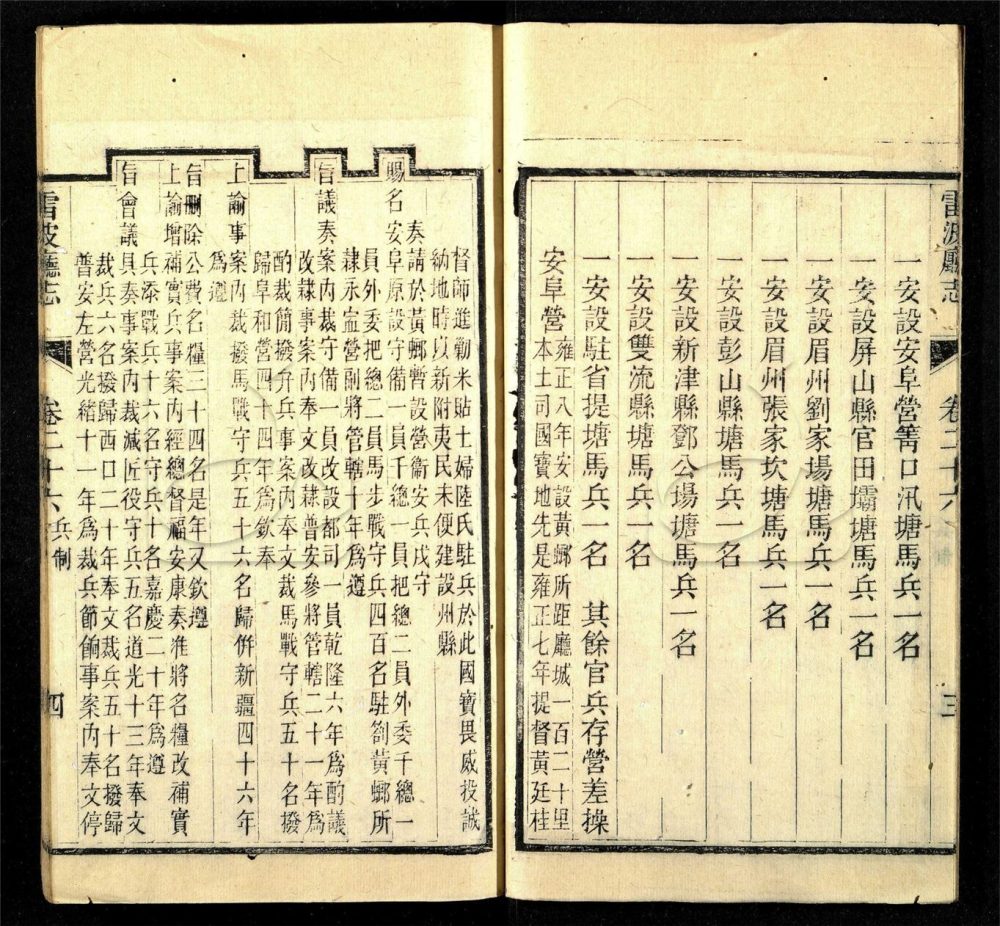 雷波廳志
卷二十六
三
一安設安阜營箐口汛塘馬兵一名
一安設屏山縣官田壩塘馬兵一名
一安設眉州劉家場塘馬兵一名
一安設眉州張家坎塘馬兵一名
一安設彭山縣塘馬兵一名
一安設新津縣鄧公場塘馬兵一名
一安設雙流縣塘馬兵一名
一安設駐省提塘馬兵一名　其餘官兵存營差操
安阜營
雍正八年安設黃螂所距廳城一百二十里
本土司國寶地先是雍正七年提督黃廷桂
督師進勦米貼土婦陸氏駐兵於此國寶畏威投誠
納地時以新附夷民未便建設州縣
奏請於黃螂暫設營衞安兵戍守
賜名安阜原設守備一員千總一員把總二員外委千總一
員外委把總二員馬步戰守兵四百名駐劄黃螂所
隷永寍營副將管轄十年爲遵
旨議奏案內裁守備一員改設都司一員乾隆六年爲酌議
改隷事案內奉文改隷普安參將管轄二十一年爲
酌裁簡撥弁兵事案內奉文裁馬戰守兵五十名撥
歸阜和營四十四年爲欽奉
上諭事案內裁撥馬戰守兵五十六名歸併新疆四十六年
爲遵
旨刪除公費名糧三十四名是年又欽遵
上諭增補實兵事案內經總督福安康奏准將名糧改補實
兵添戰兵十六名守兵十名嘉慶二十年爲遵
旨會議具奏事案內裁減匠役守兵五名道光十三年奉文
裁兵六名撥歸西口二十年奉文裁兵五十名撥歸
普安左營光緒十一年爲裁兵節餉事案內奉文停
雷波廳志
卷二十六
兵制
四